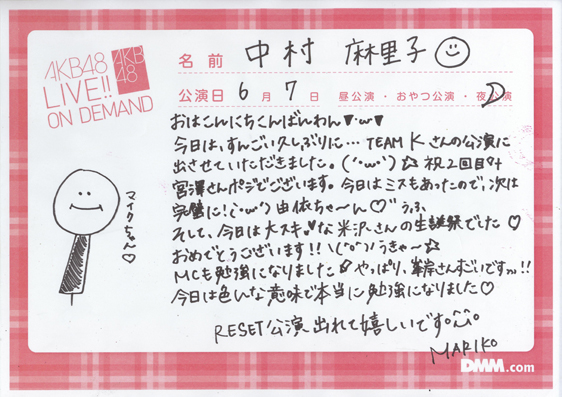 AKB48
LIVE!!
ON DEMAND
AKB
48
名前 中村 麻里子
公演日 6月7日 昼公演・おやつ公演・夜公演
おはこんにちこんばんわん♥・ω・♥
今日は、すんごい久しぶりに… TEAM Kさんの公演に
出させていただきました。(´・ω・`)☆祝2回目
宮澤さんポジでございます。今日はミスもあったので、次は
完璧に!(・ω・´) 由依ちゃ〜ん♡ うふふ
そして、今日は大スキ♪な米沢さんの生誕祭でした♡
おめでとうございます!!\(^o^)/うきゃ〜☆
MCも勉強になりました やっぱり、峯岸さんすごいですっ!!
今日は色んな意味で本当に勉強になりました♡
RESET公演出れて嬉しいです
MARIKO
マイクちゃん♡
DMM.com